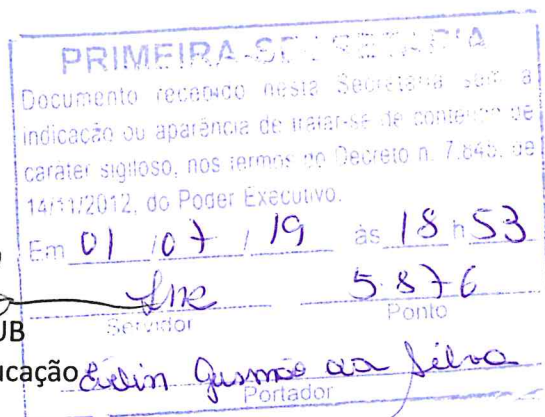 PRIMEIRA-SECRETARIA
Documento recebido nesta Secretaria sem a
indicação ou aparência de tratar-se de conteúdo de
caráter sigiloso, nos termos do Decreto n. 7.845, de
14/11/2012, do Poder Executivo.
Em 01 / 07 / 19 às 18 h 53
5876
Servidor Ponto
UB
ucação
Gusmão da Silva
Portador